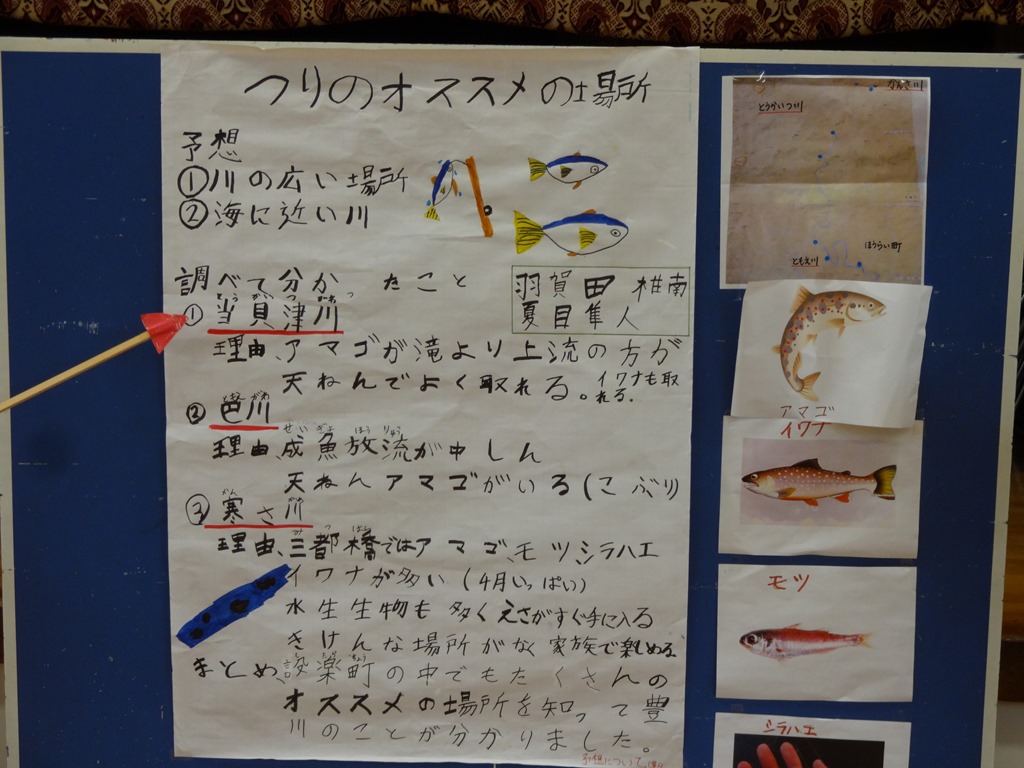 つりのオススメの場所
予想
①川の広い場所
②海に近い川
調べて分かったこと
羽賀田 椎南
夏目隼人
とう がい つ がわ
①当貝津川
理由、アマゴが滝より上流の方が
天ねんでよく取れる。イワナも取れる。
②巴川
せい ぎょ ほう りゅう
理由、成魚放流が中しん
天ねんアマゴがいる(こぶり
かん
③寒さ川
理由、三都橋ではアマゴ、モツ、シラハエ
イワナが多い(4月いっぱい)
水生生物も多くえさがすぐ手に入る
きけんな場所がなく家族で楽しめる
まとめ、設楽町の中でもたくさんの
オススメの場所を知って豊
川のことが分かりました。
かんさ川
とうがいつ川
ほうらい町
ともえ川
アマゴ
イワナ
モツ
シラハエ